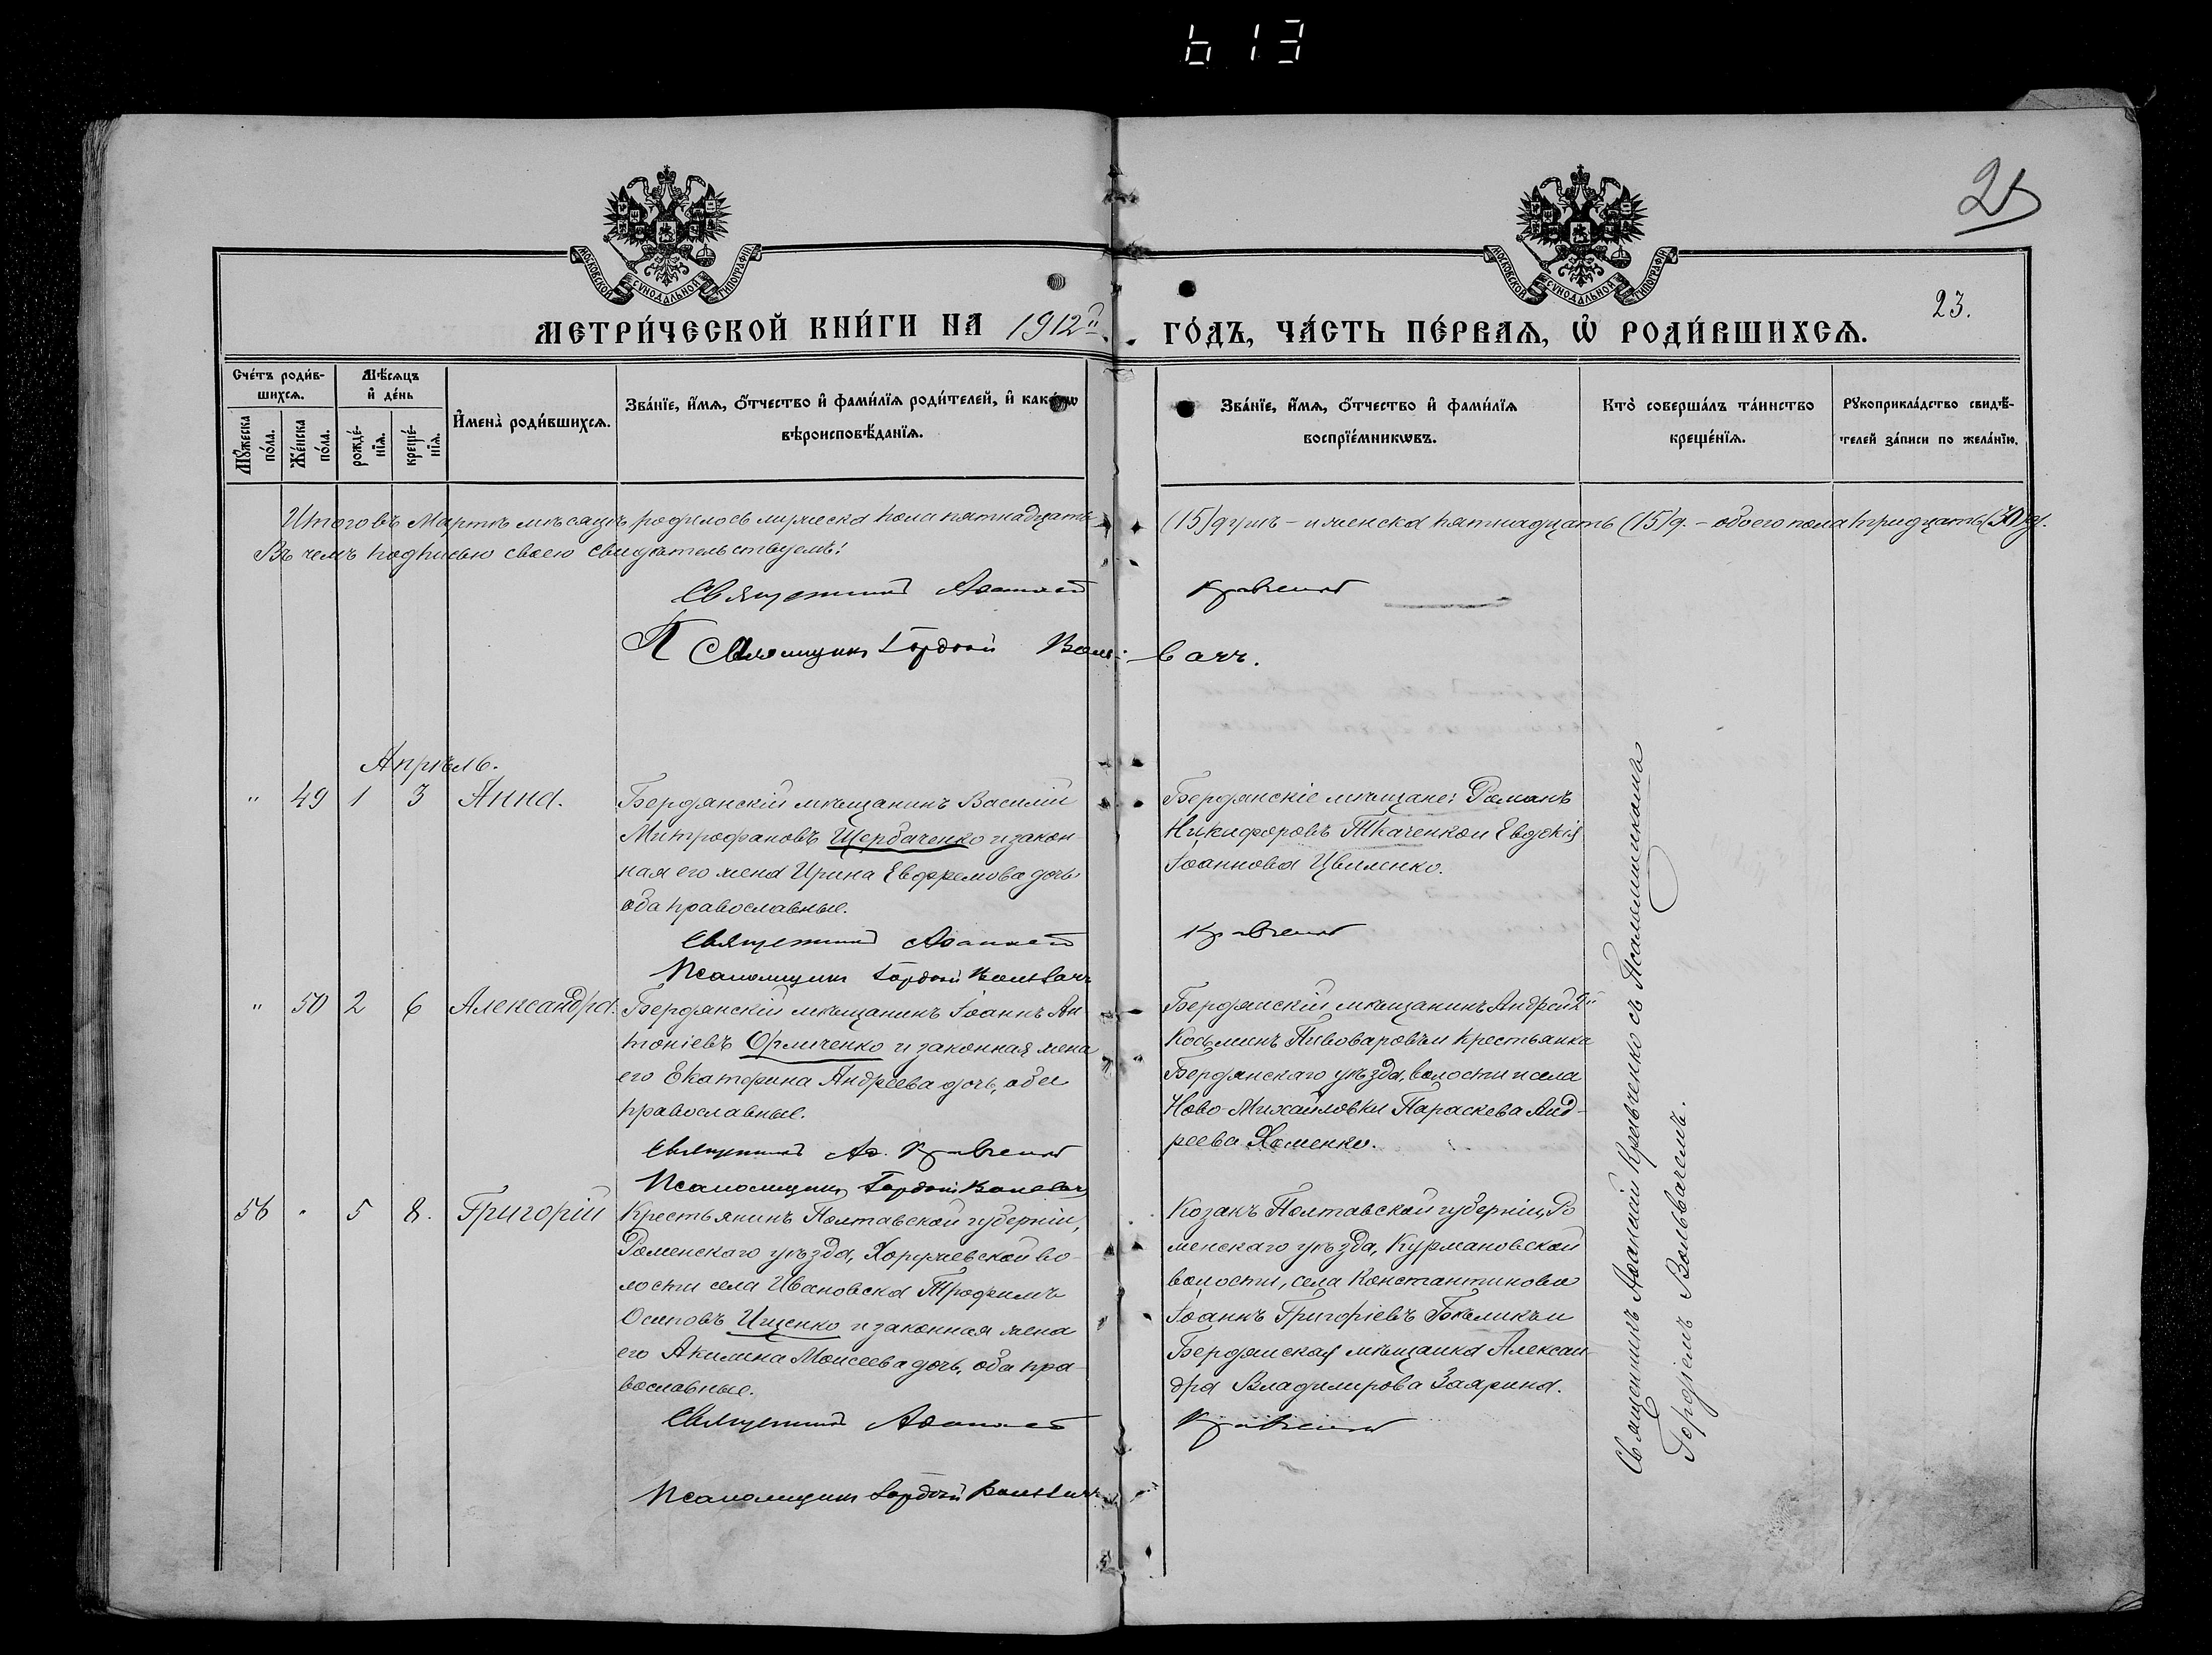 613
21
МОСКОВСКОЙ СѴНОДАЛЬНОЙ ТИПОГРАФІИ
МОСКОВСКОЙ СѴНОДАЛЬНОЙ ТИПОГРАФІИ
23.
МЕТРИ́ЧЕСКОЙ КНИ́ГИ НА 1912й
ГО́ДЪ, ЧА́СТЬ ПЕ́РВАѦ, Ѡ҆ РОДИ́ВШИХСѦ.
Сче́тъ роди́в-
шихсѧ.
Мѣ́сѧцъ
и҆ де́нь
Мꙋ́жеска
по́ла.
Же́нска
по́ла.
рожде́-
нїѧ.
креще́-
нїѧ.
И҆мена̀ роди́вшихсѧ.
Зва́нїе, и҆́мѧ, ѻ҆́тчество и҆ фами́лїѧ роди́телей, и҆ како́гѡ
вѣроисповѣ́данїѧ.
Зва́нїе, и҆́мѧ, ѻ҆́тчество и҆ фами́лїѧ
воспрїе́мникѡвъ.
Кто̀ соверша́лъ та́инство
креще́нїѧ.
Рꙋкоприкла́дство свидѣ́-
телей за́писи по жела́нїю.
Итого въ Мартѣ мѣсяцѣ родилось мужеска пола пятнадцать
(15) душъ - и женска пятнадцать (15) д. - обоего пола тридцать (30) д.
Въ чемъ подписью своею свидѣтельствуемъ:
Священникъ Афанасій Кравченко
Псаломщикъ Гордѣй Вольвачъ.
Апрѣль.
" 49 1 3 Анна.
Бердянскій мѣщанинъ Василій
Митрофановъ Щербаченко и закон-
ная его жена Ирина Евфремова дочь
оба православные.
Священникъ Афанасій Кравченко
Псаломщикъ Гордѣй Вольвачъ
Бердянскіе мѣщане: Романъ
Никифоровъ Ткаченко и Евдокія
Іоаннова Цвиленко.
" 50 2 6 Александра.
Бердянскій мѣщанинъ Іоаннъ Ан-
тоніевъ и законная жена
его Екатерина Андреева дочь, оба
православные.
Священникъ Аф. Кравченко
Псаломщикъ Гордѣй Вольвачъ
Бердянскій мѣщанинъ Андрей 2й
Косьминъ Пивоваровъ и крестьянка
Бердянскаго уѣзда, волости и села
Ново-Михайловки Параскева Анд-
реева Хоменко.
56 " 5 8. Григорій
Крестьянинъ Полтавской губерніи,
Роменскаго уѣзда, Хоружевской во-
лости села Ивановска Трофимъ
Осиповъ Ищенко и законная жена
его Акилина Моисеева дочь, оба пра-
вославные.
Священникъ Афанасій Кравченко
Псаломщикъ Гордѣй Вольвачъ
Козакъ Полтавской губерніи, Ро-
менскаго уѣзда, Курмановской
волости, села Константинова
Іоаннъ Григоріевъ и
Бердянская мѣщанка Алексан-
дра Владимирова Заярина.
Священникъ Афанасій Кравченко съ Псаломщикомъ
Гордѣемъ Вольвачемъ.